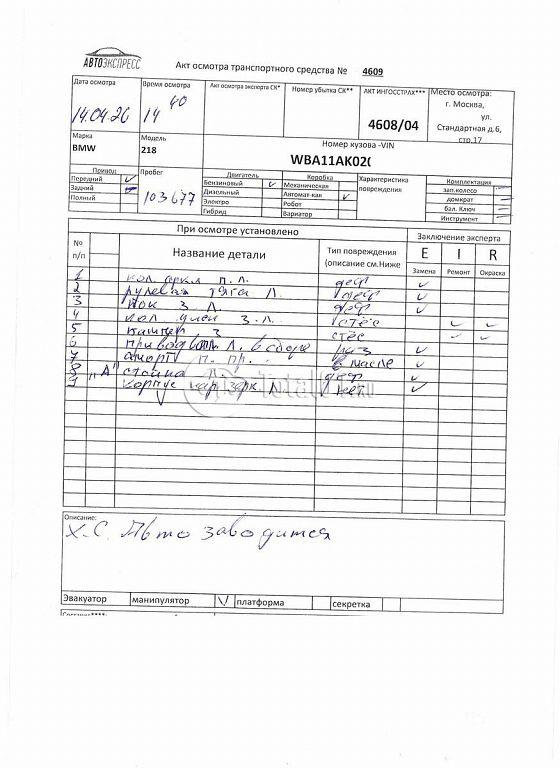 АВТОЭКСПРЕСС
Акт осмотра транспортного средства № 4609
Дата осмотра
14.04.26
Время осмотра
14 40
Акт осмотра эксперта СК*
Номер убытка СК**
АКТ ИНГОССТРАХ***
4608/04
Место осмотра:
г. Москва,
ул.
Стандартная д.6,
стр.17
Марка
BMW
Модель
218
Номер кузова -VIN
WBA11AK02(
Привод
Передний
Задний
Полный
Пробег
103677
Двигатель
Бензиновый
Дизельный
Электро
Гибрид
Коробка
Механическая
Автомат-кая
Робот
Вариатор
Характеристика
повреждения
Комплектация
зап.колесо
домкрат
бал. Ключ
Инструмент
При осмотре установлено
Заключение эксперта
№
п/п
Название детали
Тип повреждения
(описание см.Ниже
E
Замена
I
Ремонт
R
Окраска
1 п.л. деф
2 рулевая тяга Л. деф
3 З Л. деф
4 кол диск З.Л. стёс
5 З стёс
6 привод Л. в сборе раз
7 аморт п. пр. в масле
8 "А" стойка Л деф
9 корпус нар зерк Л нет
TotalDTP.ru
Описание:
Х.С. Авто заводится
Эвакуатор
манипулятор
платформа
секретка